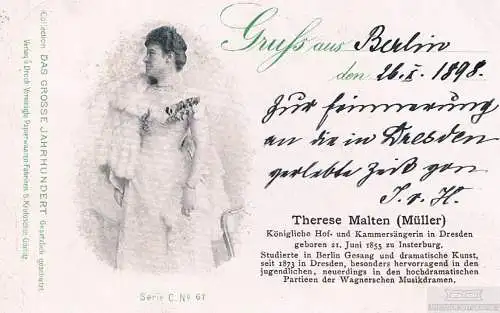 Collection DAS GROSSE JAHRHUNDERT Gesetzlich geschützt
Verlag & Druck Vereinigte Papierwaaren-Fabriken S. Krotoschin Görlitz
Serie C. № 61
Gruss aus Berlin
den 26. X. 1898.
Zur Erinnerung
an die in Dresden
verlebte Zeit von
J. v. H.
Therese Malten (Müller)
Königliche Hof- und Kammersängerin in Dresden
geboren 21. Juni 1855 zu Insterburg.
Studierte in Berlin Gesang und dramatische Kunst,
seit 1873 in Dresden, besonders hervorragend in den
jugendlichen, neuerdings in den hochdramatischen
Partieen der Wagnerschen Musikdramen.